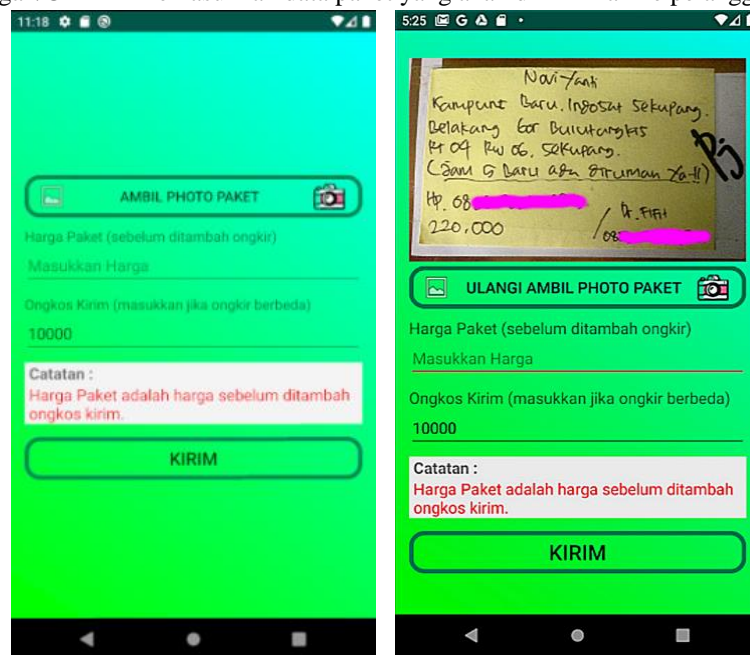 11:18
AMBIL PHOTO PAKET
Harga Paket (sebelum ditambah ongkir)
Masukkan Harga
Ongkos Kirim (masukkan jika ongkir berbeda)
10000
Catatan :
Harga Paket adalah harga sebelum ditambah
ongkos kirim.
KIRIM
5:25
Novi Yanti
Kampunt Baru. Indosat Sekupang.
Belakang Gor Bulutangkis
Rt 04 Rw 06. Sekupang.
(Jam 5 Baru ada dirumah
Hp. 08
220.000
08
ULANGI AMBIL PHOTO PAKET
Harga Paket (sebelum ditambah ongkir)
Masukkan Harga
Ongkos Kirim (masukkan jika ongkir berbeda)
10000
Catatan :
Harga Paket adalah harga sebelum ditambah
ongkos kirim.
KIRIM